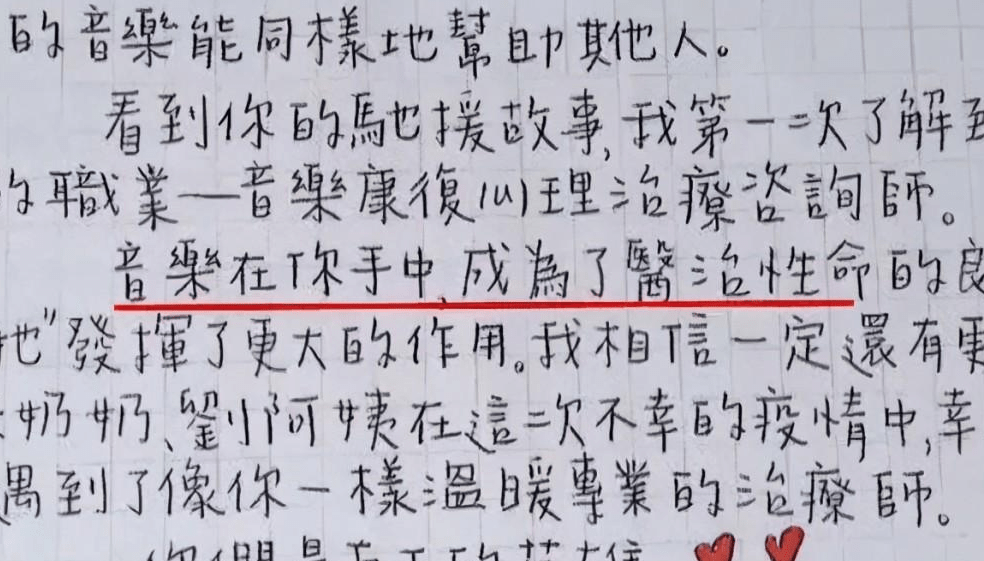 的音樂能同樣地幫助其他人。
看到你的馳援故事,我第一次了解到
的職業—音樂康復心理治療咨詢師。
音樂在你手中,成為了醫治性命的良
地"發揮了更大的作用。我相信一定還有更
奶奶、劉阿姨在這次不幸的疫情中,幸
遇到了像你一樣溫暖專業的治療師。
你們是